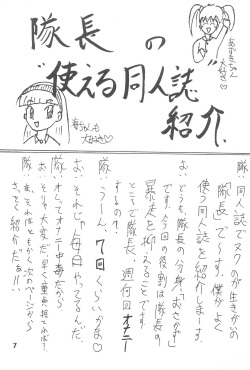 隊長の
"使える同人誌"
紹介
あずきちゃん
大好き♡
大好き♡
隊:同人誌でヌクのが生きがいの
「隊長」で～す。僕がよく
使う同人誌を紹介しま～す。
お:どうも、隊長の分身「おさかず」
です。今回の役割は隊長の
暴走を抑えることです。
ところで隊長、週何回オナニー
するの?
隊:う～ん、7回くらいかな♡
お:それじゃ毎日やってるんだ。
隊:オレってオナニー中毒だから
お:そりゃ大変だ!早く童貞捨てれば?
隊:ま、それはともかく次のページから
さっそく紹介だぁ!!
7